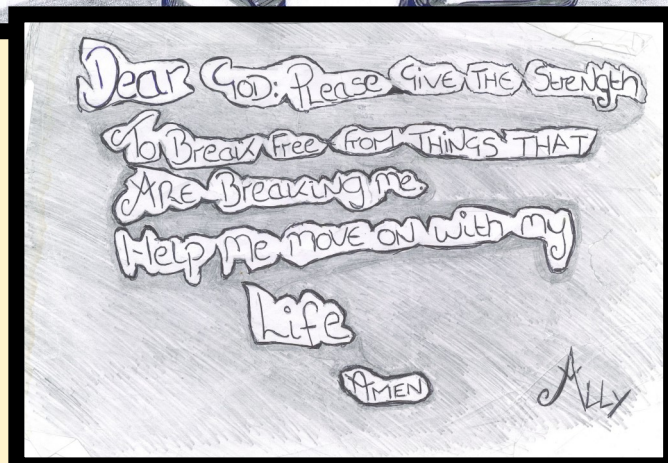 Dear GOD: Please GIVE THE Strength
To Break Free From THINGS THAT
ARE Breaking me.
Help Me MOVE ON With my
Life
AMEN
ALLY